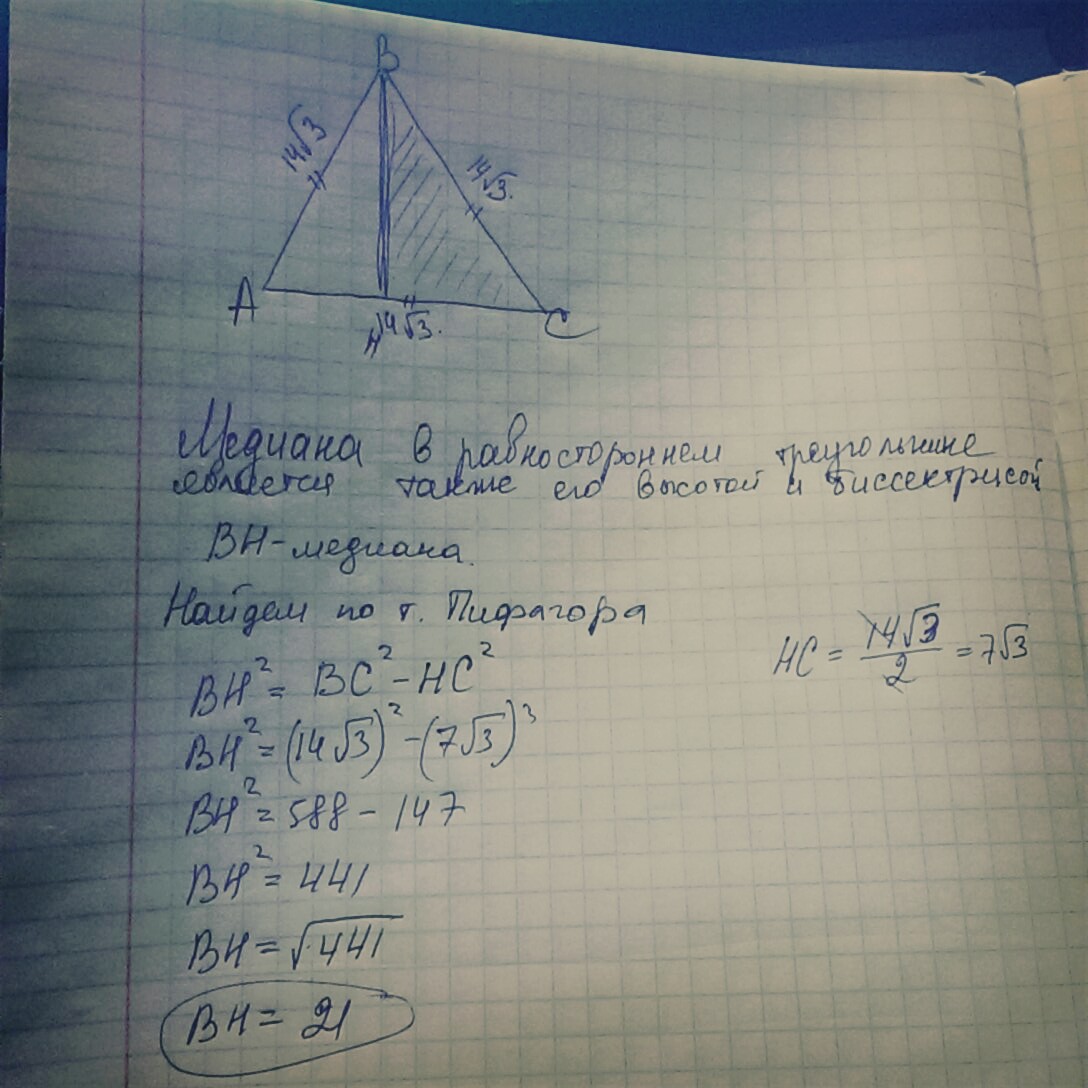 B
14√3
14√3.
A
H
14√3.
C
Медиана в равностороннем треугольнике
является также его высотой и биссектрисой
BH-медиана.
Найдем по т. Пифагора
HC = 14√3/2 = 7√3
BH² = BC² - HC²
BH² = (14√3)² - (7√3)³
BH² = 588 - 147
BH² = 441
BH = √441
BH = 21